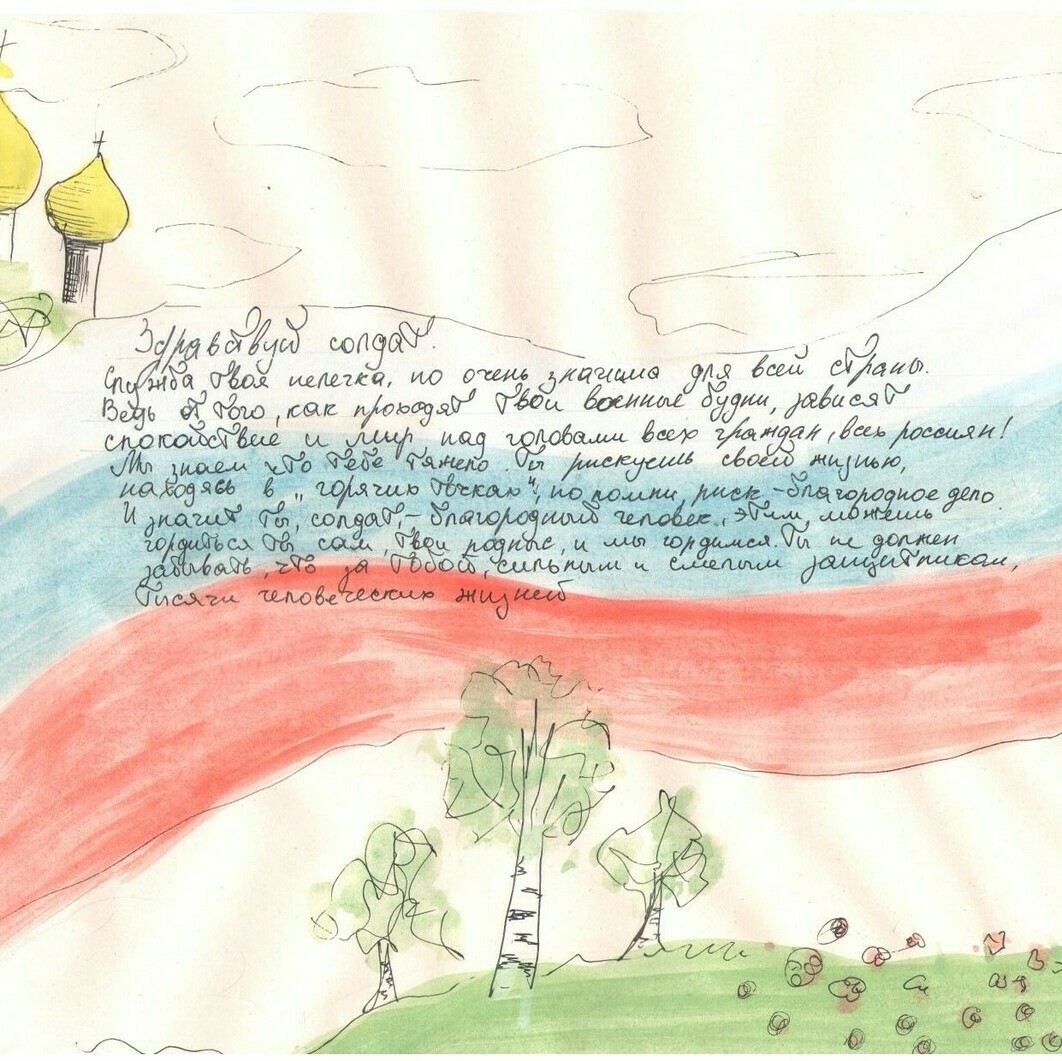 Здравствуй солдат.
Служба твоя нелегка, но очень значима для всей страны.
Ведь от того, как проходят твои военные будни, зависят
спокойствие и мир над головами всех граждан, всех россиян!
Мы знаем что тебе тяжело. Ты рискуешь своей жизнью,
находясь в "горячих точках", но помни, риск - благородное дело.
И значит ты, солдат, - благородный человек. Этим, можешь
гордиться ты сам, твои родные, и мы гордимся. Ты не должен
забывать, что за тобой, сильным и смелым защитником,
тысячи человеческих жизней